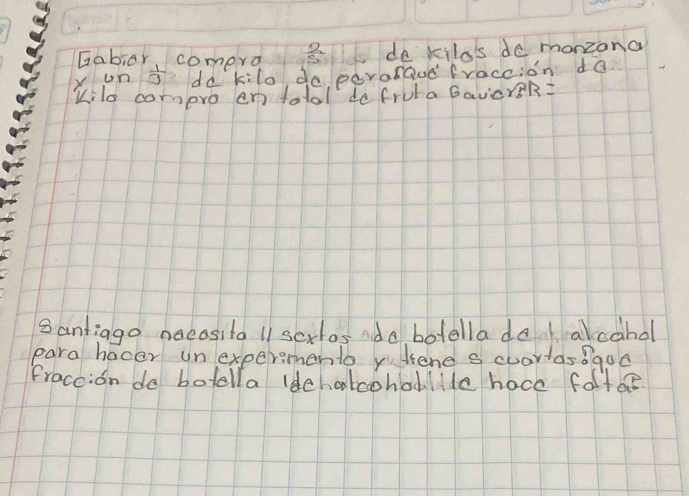 Gabier compro 2/5 de kilos de manzana
y un 1/3 de kilo de peras¿Que fracción de
kilo compro en total de fruta Gavier?R=
Santiago nacosita 11 sextos de botella de alcohol
para hacer un experimento y tiene 5 cuartas¿que
fracción de botella de alcohol le hace falta?